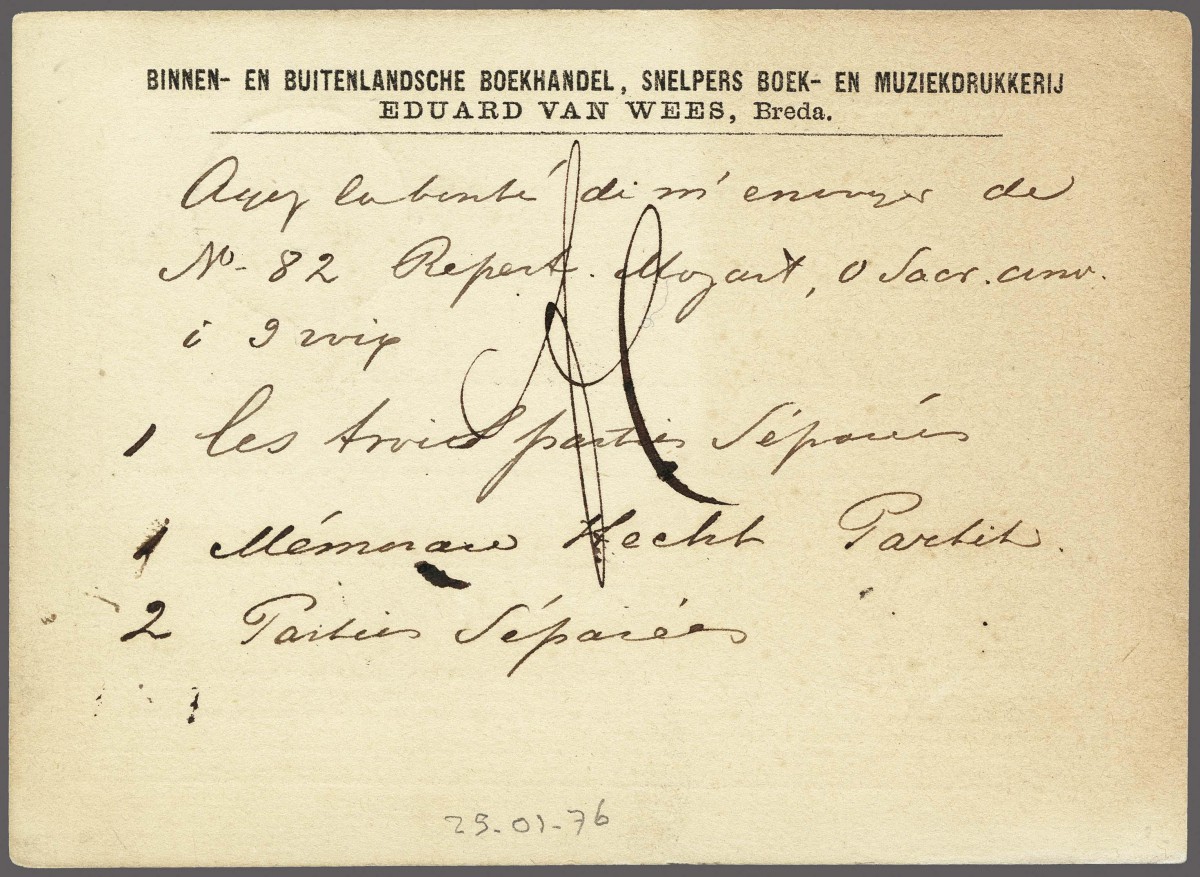 BINNEN- EN BUITENLANDSCHE BOEKHANDEL, SNELPERS BOEK- EN MUZIEKDRUKKERIJ
EDUARD VAN WEES, Breda.
Ayez la bonté de m'envoyer de
No- 82 Repert. Mozart, O Sacr. conv.
1 les trois parties Séparées
1 Mémorare Hecht Partit.
2 Parties Séparées
29-01-76